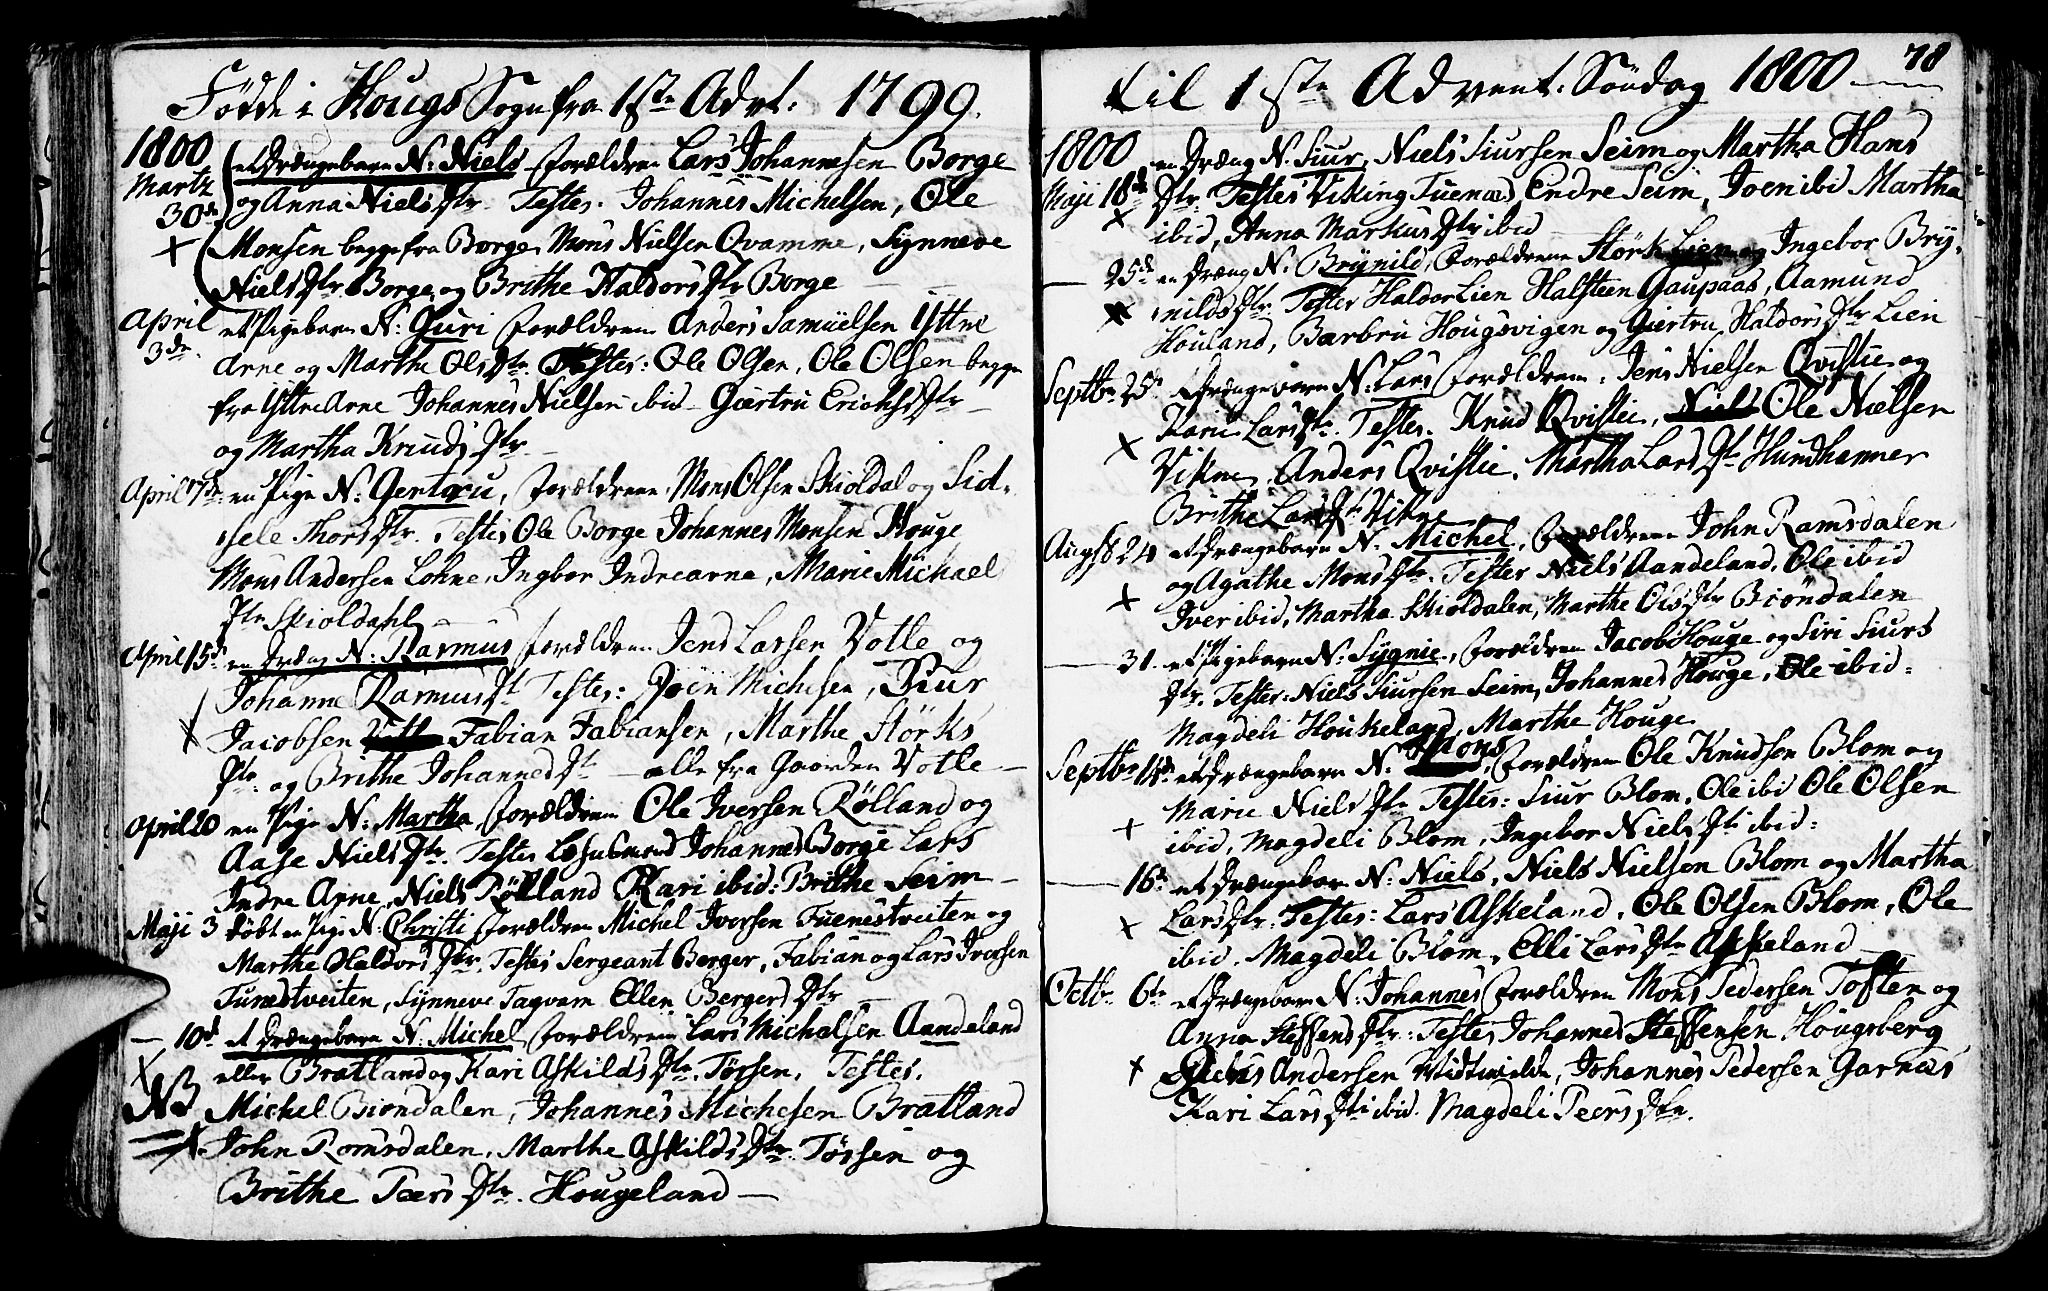 Fødde i Hougs Sogn fra 1ste Advt. 1799.
1800 et drængebarn N: Niels forældren Lars Johannesen Borge
Martz 30de og Anna Nielsdtr. Testes. Johannes Michelsen, Ole
Monsen begge fra Borge, Mons Nielsen Qvamme, Synneve
Nielsdtr Borge og Brithe Haldorsdtr Borge
April et Pigebarn N: Guri forældren Anders Samuelsen Yttre
3de. Arne og Marthe Olsdtr. Testes: Ole Olsen, Ole Olsen begge
fra Yttre Arne Johannes Nielsen ibid Giertru Erichsdtr
og Martha Knudsdtr
April 7de en Pige N: Gertru, forældrene Mons Olsen Skioldal og Sid-
sele Thorsdtr. Testes Ole Borge Johannes Monsen Houge
Mons Andersen Lohne, Ingbor Indrearne, Marie Michael
dtr Skioldahl
April 15de en dræng N: Rasmus forældren Jens Larsen Votle og
Johanne Rasmusdt Testes: Joen Michesen, Siur
Jacobsen Fabian Fabiansen, Marthe Størks
dtr og Brithe Johannesdt alle fra Gaarden Votle
April 20 en Pige N: Martha forældren Ole Iversen Rølland og
Aase Nielsdtr. Testes Johannes Borge Lars
Indre Arne, Niels Rølland Kari ibid: Brithe Seim
Maji 3 døbt en Pige N: Christi forældren Michel Iversen Tuenestveiten og
Marthe Haldorsdtr. Testes Sergeant Berger, Fabian og Lars Iversen
Tunestveiten, Synneve Tagvam Ellen Bergersdtr
10de et drængebarn N: Michel forældren Lars Michalsen Aandeland
eller Bratland og Kari Askildsdtr. Tørsen. Testes.
NB Michel Biøndalen, Johannes Michesen Bratland
John Romsdalen, Marthe Askildsdtr. Tørsen og
Brithe Peersdtr. Hougeland
78
til 1ste Advent: Søndag 1800
1800 en dræng N. Siur, Niels Siursen Seim og Martha Hans
Maji 18de dtr. Testes Viking Tuenæs, Endre Seim, Joen ibid Martha
ibid, Anna Markusdtr ibid
25de en dræng N. Brynild, forældrene Størk Lien og Ingebor Bry-
nildsdtr. Testes Haldor Lien Halsteen Gaupaas, Aamund
Houland, Barbru Hougsvigen og Giertru Haldorsdtr Lien
Septbr 25de drængebarn N: Lars forældren: Jens Nielsen Qvistie og
Kari Larsdtr. Testes. Knud Qvistie, Niels Ole Nielsen
Vikne, Anders Qvistie, Martha Larsdt Hundhammer
Brithe Larsdt Vikne
Augst 24 et drængebarn N: Michel, forældrene John Ramsdalen
og Agathe Monsdtr. Testes Niels Aandeland, Ole ibid
Iver ibid, Martha Skioldalen, Marthe Olsdtr Biøndalen
31. et Pigebarn N: Sygnie, forældren Jacob Houge og Siri Siurs
dtr. Testes: Niels Siursen Seim, Johannes Houge, Ole ibid:
Magdeli Houkeland, Marthe Houge
Septbr 14de et drængebarn N: Mons forældren Ole Knudsen Blom og
Marie Nielsdtr Testes: Siur Blom, Ole ibi Ole Olsen
ibid, Magdeli Blom, Ingebor Nielsdt ibid:
16de et drængebar N: Niels, Niels Nielsen Blom og Martha
Larsdtr. Testes: Lars Askeland, Ole Olsen Blom, Ole
ibid. Magdeli Blom, Elli Larsdtr Askeland
Octbr 6te et drængebarn N: Johannes forældren Mons Pedersen Toften og
Anna Steffensdtr: Testes Johannes Steffensen Hougsberg
Andersen Midtvielde, Johannes Pedersen Garnæs
Kari Larsdt ibid. Magdeli Peersdtr.